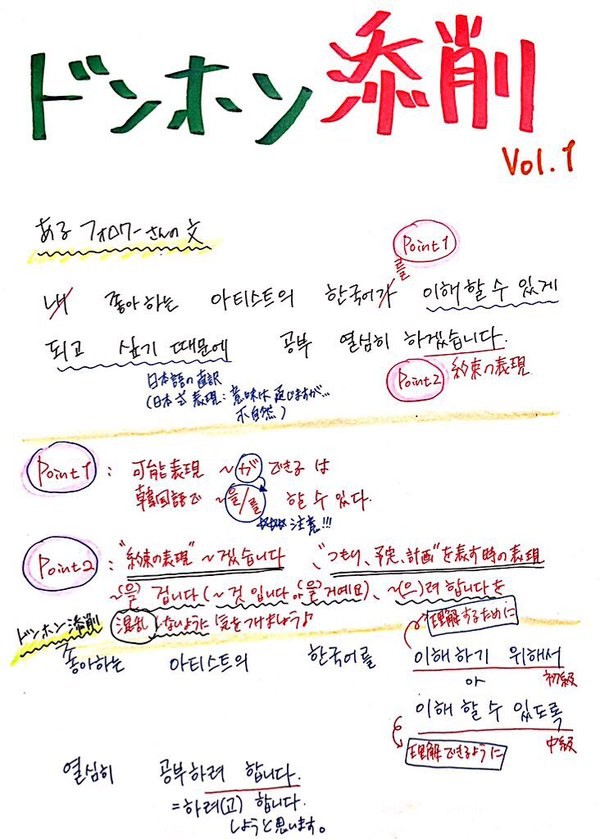 ドンホン添削
Vol.1
ある フォロワーさんの文
Point1
를
내 좋아하는 아티스트의 한국어가 이해할 수 있게
되고 싶기 때문에 공부 열심히 하겠습니다.
日本語の直訳
(日本式表現:意味は通じますが…
不自然)
Point2 約束の表現
Point1 : 可能表現 ~が できる は
韓国語で ~을/를 할 수 있다.
注意!!!
Point2 : "約束の表現" ~겠습니다 、"つもり、予定、計画"を表す時の表現
~(을) 겁니다 (~것 입니다 아(을)거예요)、~(으)려 합니다を
混乱しないように 気をつけましょう♪
ドンホン添削
理解するために
좋아하는 아티스트의 한국어를 이해하기 위해서
or 初級
이해 할 수 있도록
理解できるように 中級
열심히 공부하려 합니다.
=하려(고) 합니다.
しようと思います。